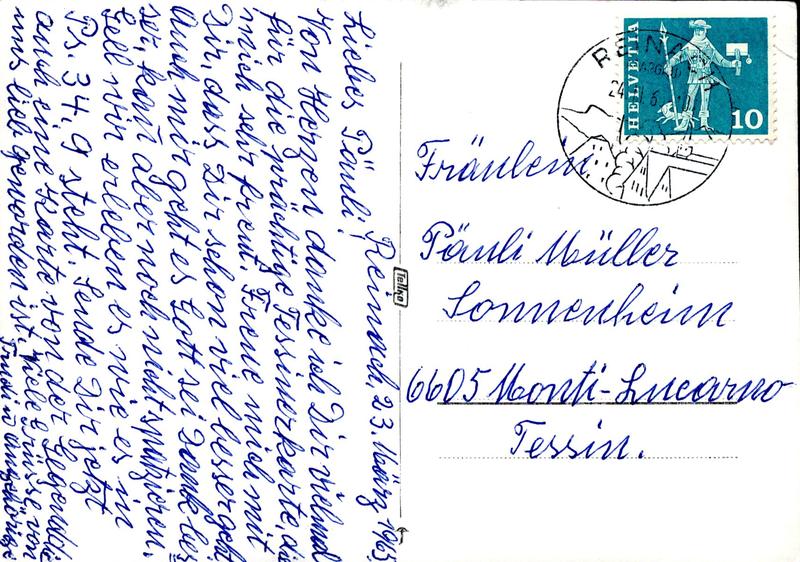 Reinach, 23. März 1965
Liebes Päuli!
Von Herzen danke ich Dir vielmal
für die prächtige Tessinerkarte, die
mich sehr freut. Freue mich mit
Dir, dass Dir schon viel besser geht
Auch mir geht es Gott sei Dank bes
ser, kann aber noch nicht spatzieren.
Gell wir erleben es wie es in
Ps. 34, 9 steht. Sende Dir jetzt
auch eine Karte von der Gegend die
uns lieb geworden ist. Viele Grüsse von
Trudi u. Angehörige
Tellko
HELVETIA
10
REINACH
24
Fräulein
Päuli Müller
Sonnenheim
6605 Monti-Lucarno
Tessin.